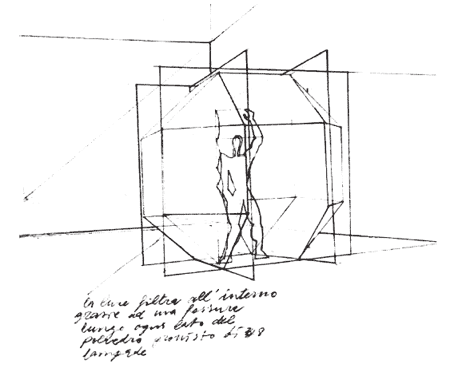 la luce filtra all'interno
grazie ad una fessura
lungo ogni lato del
poliedro provvisto di 38
lampade